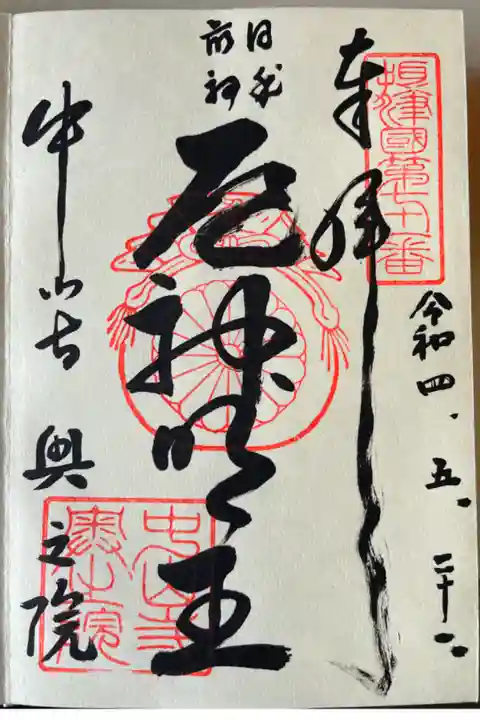 摂津國第七十一番
奉拝
令和四、五、二十一、
日本
最初
厄神明王
中山寺 奥之院
中山寺
奥之院